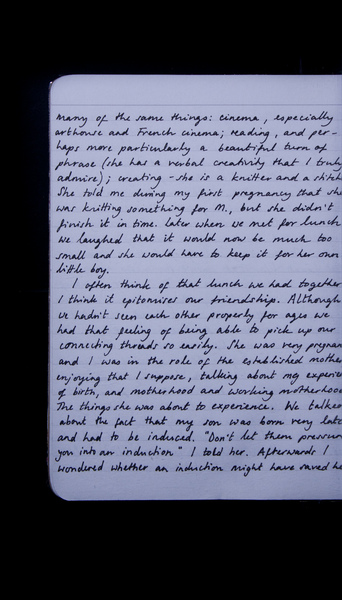 many of the same things: cinema, especially
arthouse and French cinema; reading, and per-
haps more particularly a beautiful turn of
phrase (she has a verbal creativity that I truly
admire); creating - she is a knitter and a stitch
She told me during my first pregnancy that she
was knitting something for M., but she didn't
finish it in time. Later when we met for lunch
we laughed that it would now be much too
small and she would have to keep it for her own
little boy.
I often think of that lunch we had together
I think it epitomises our friendship. Although
we hadn't seen each other properly for ages we
had that feeling of being able to pick up our
connecting threads so easily. She was very pregnan
and I was in the role of the established mothe
enjoying that I suppose, talking about my experien
of birth, and motherhood and working motherhood
The things she was about to experience. We talked
about the fact that my son was born very late
and had to be induced. "Don't let them pressur
you into an induction" I told her. Afterwards I
wondered whether an induction might have saved he